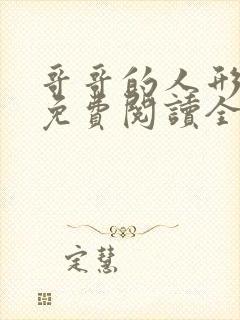 哥哥的人形
免費閱讀全
定慧